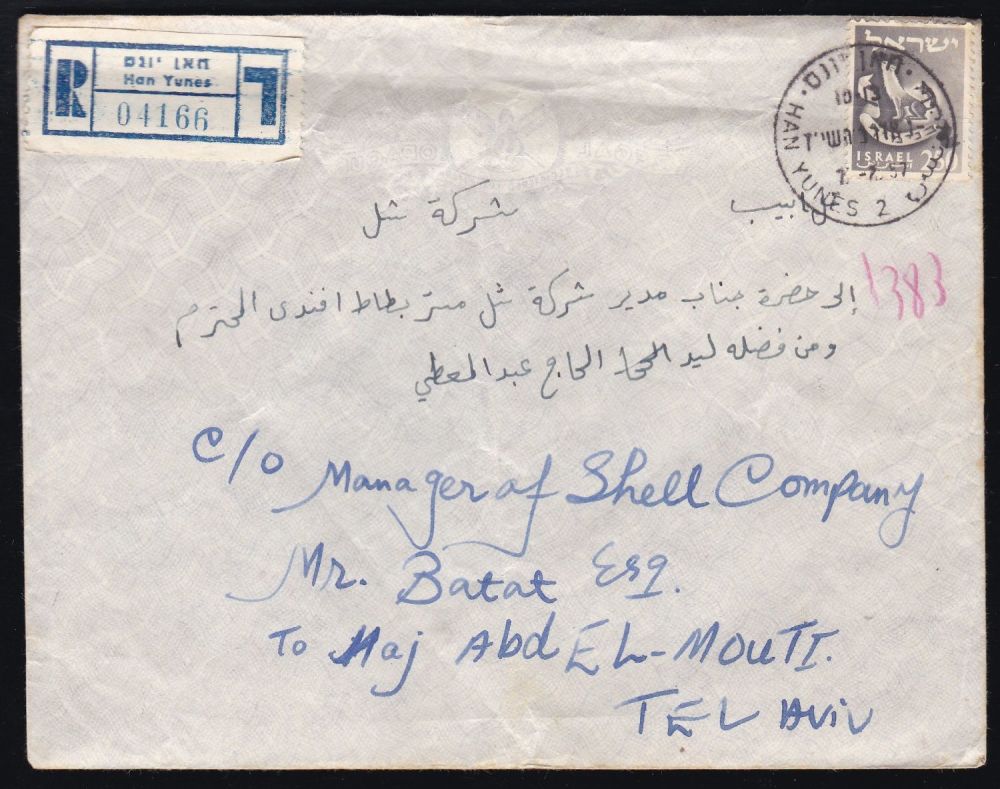 R
חאן יונס
Han Yunes
04166
ר
ישראל
ISRAEL
חאן יונס
HAN YUNES 2
شركة شل
1383
إلى حضرة جناب مدير شركة شل مستر بطاط افندى المحترم
ومن فضله ليد الحاج عبد المعطي
c/o Manager of Shell Company
Mr. Batat Esq.
To Haj Abd EL-MOUTI.
TEL AViv